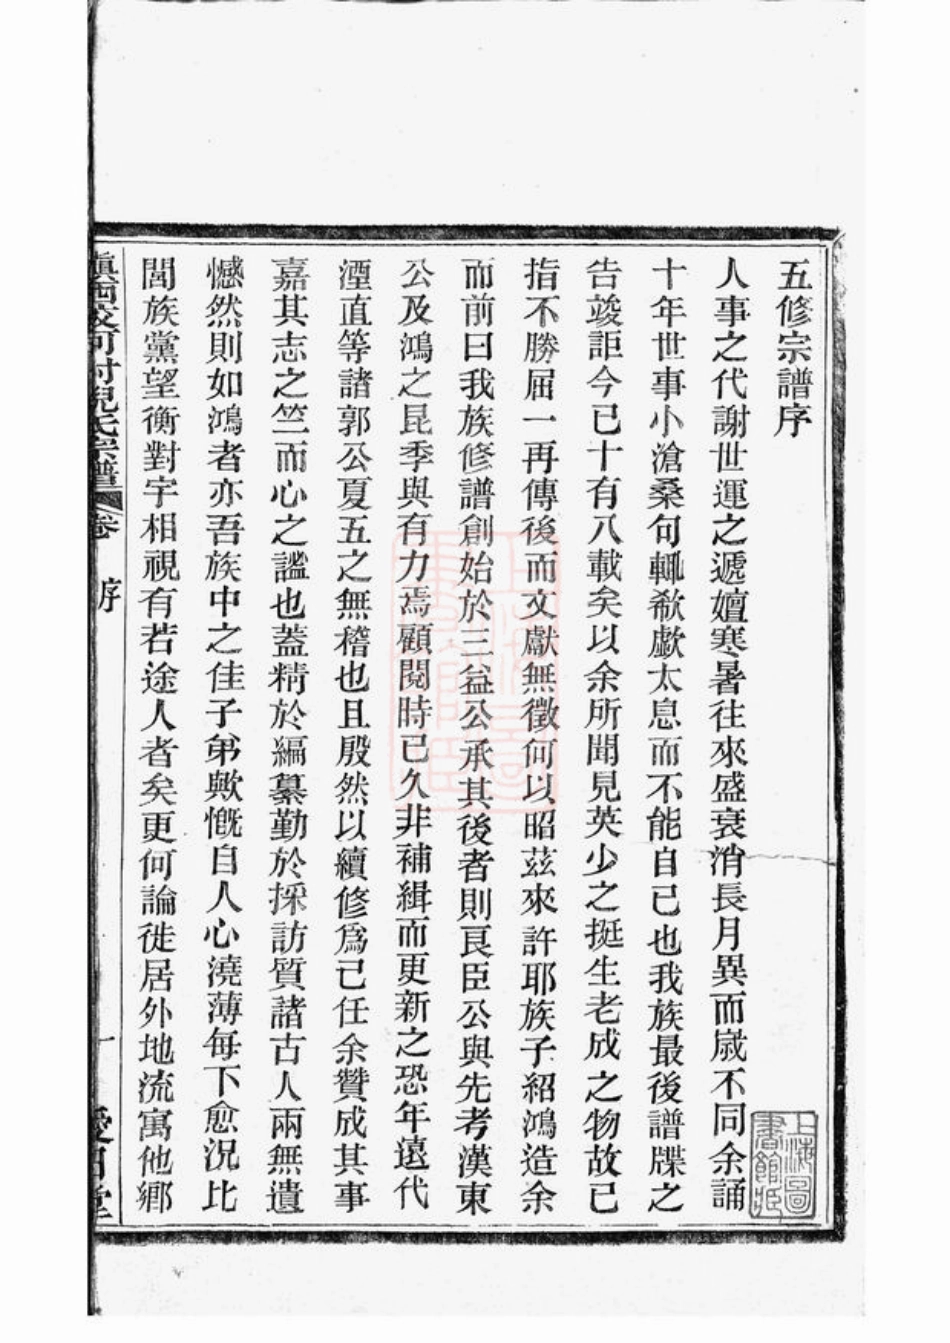 五修宗譜序
人事之代謝世運之遞嬗寒暑往來盛衰消長月異而嵗不同余誦
十年世事小滄桑句輒欷歔太息而不能自已也我族最後譜牒之
告竣詎今已十有八載矣以余所聞見英少之挺生老成之物故已
指不勝屈一再傳後而文獻無徵何以昭茲來許耶族子紹鴻造余
而前曰我族修譜創始於三益公承其後者則艮臣公與先考漢東
公及鴻之昆季與有力焉顧閱時已久非補緝而更新之恐年遠代
湮直等諸郭公夏五之無稽也且殷然以續修爲己任余贊成其事
嘉其志之竺而心之謐也蓋精於編纂勤於採訪質諸古人兩無遺
憾然則如鴻者亦吾族中之佳子弟歟慨自人心澆薄每下愈況比
閭族黨望衡對宇相視有若途人者矣更何論徙居外地流寓他鄉
村倪氏宗譜 卷 序 一 堂
上海圖書館藏